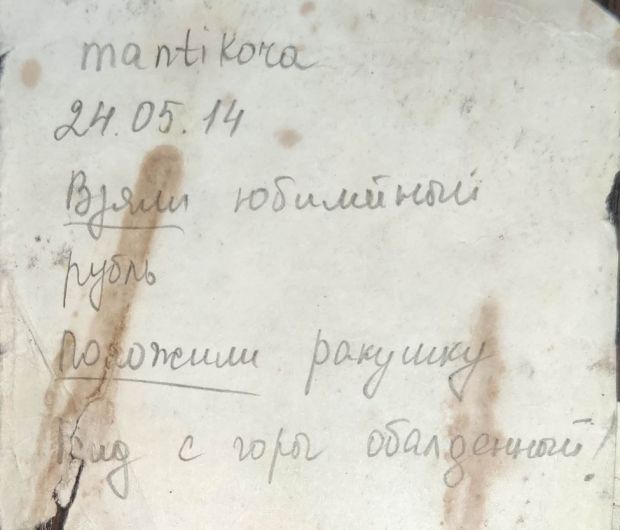 mantikora
24.05.14
Взяли юбилейный
рубль
Положили ракушку
Вид с горы обалденный!